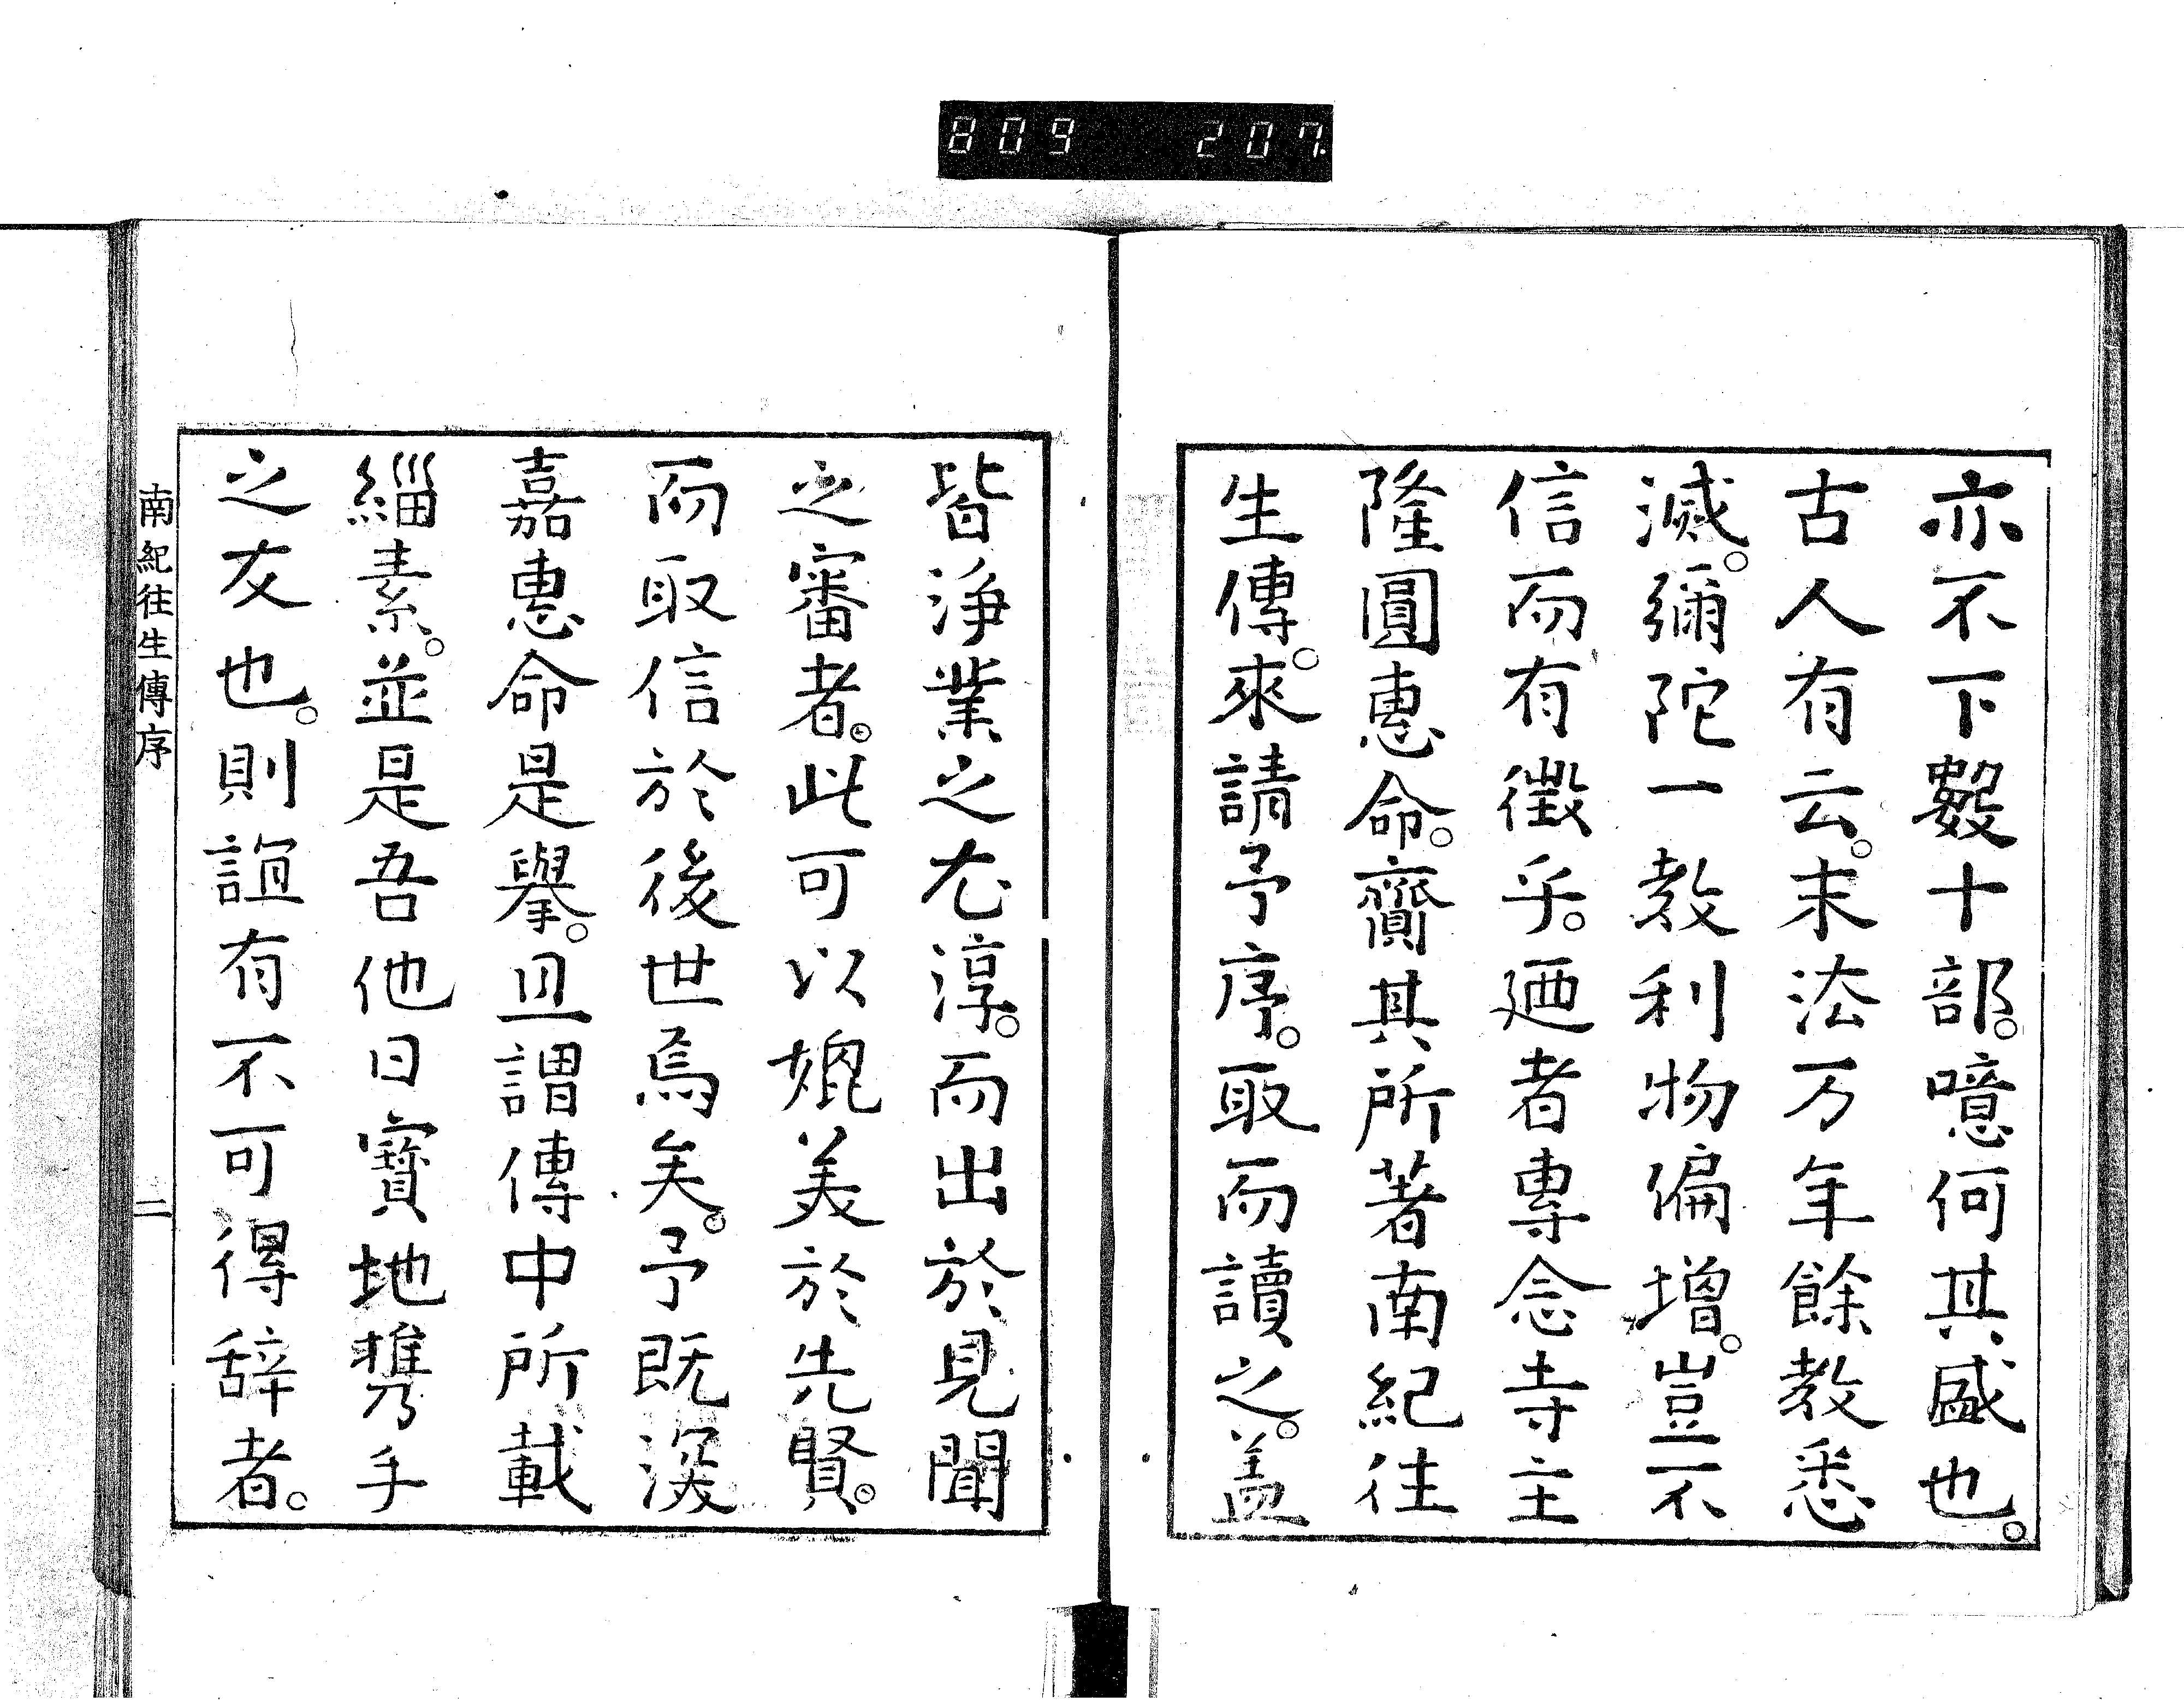 809 207.
亦不下數十部。噫何其盛也。
古人有云。末法万年餘教悉
滅。彌陀一教利物偏增。豈不
信而有徵乎。廼者專念寺主
隆圓惠命。齎其所著南紀往
生傳。來請予序。取而讀之。蓋
皆淨業之尤淳。而出於見聞
之審者。此可以媲美於先賢。
而取信於後世焉矣。予既深
嘉惠命是擧。且謂傳中所載
緇素。並是吾他日寶地攜手
之友也。則誼有不可得辭者。
南紀往生傳序
二